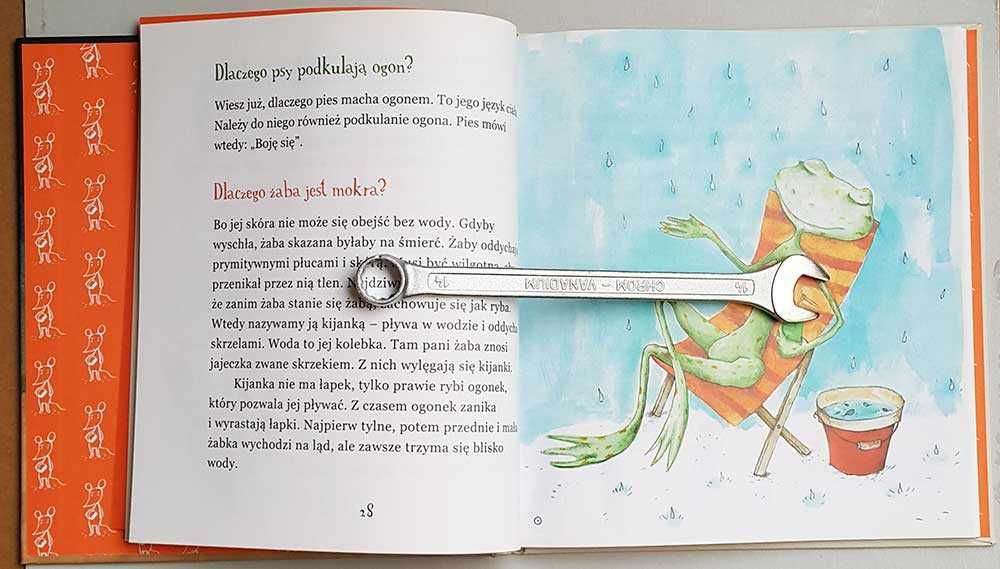 Dlaczego psy podkulają ogon?
Wiesz już, dlaczego pies macha ogonem. To jego język
Należy do niego również podkulanie ogona. Pies mówi
wtedy: „Boję się”.
Dlaczego żaba jest mokra?
Bo jej skóra nie może się obejść bez wody. Gdyby
wyschła, żaba skazana byłaby na śmierć. Żaby
prymitywnymi płucami i być wilgotna
przenikał przez nią tlen.
że zanim żaba stanie się żabą, zachowuje się jak ryba.
Wtedy nazywamy ją kijanką – pływa w wodzie i oddycha
skrzelami. Woda to jej kolebka. Tam pani żaba znosi
jajeczka zwane skrzekiem. Z nich wylęgają się kijanki.
Kijanka nie ma łapek, tylko prawie rybi ogonek,
który pozwala jej pływać. Z czasem ogonek zanika
i wyrastają łapki. Najpierw tylne, potem przednie i mała
żabka wychodzi na ląd, ale zawsze trzyma się blisko
wody.
28
14 CHROM – VANADIUM 14